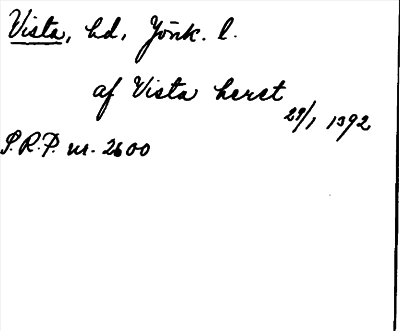 Vista, hd, Jönk. l.
af Vista herst
29/1 1392
S.R.P. nr. 2600